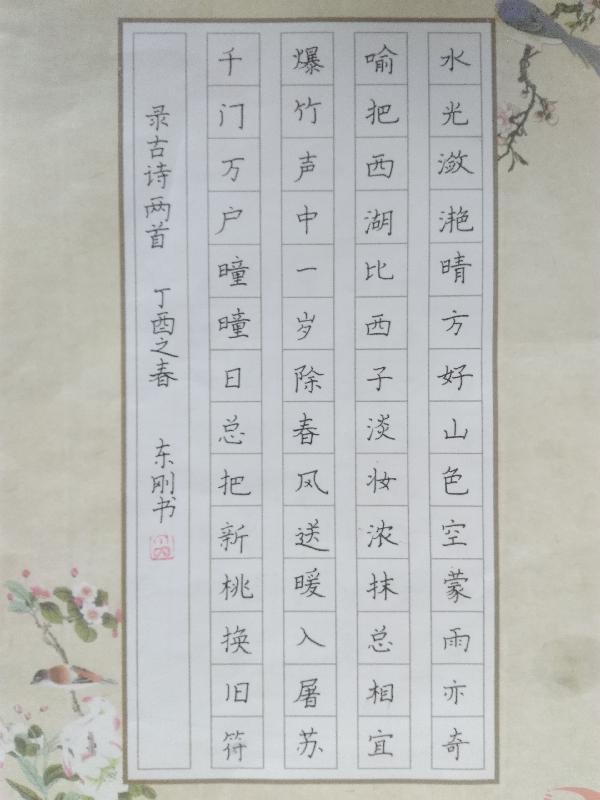 水光潋滟晴方好山色空蒙雨亦奇
喻把西湖比西子淡妆浓抹总相宜
爆竹声中一岁除春风送暖入屠苏
千门万户曈曈日总把新桃换旧符
录古诗两首 丁酉之春 东刚书